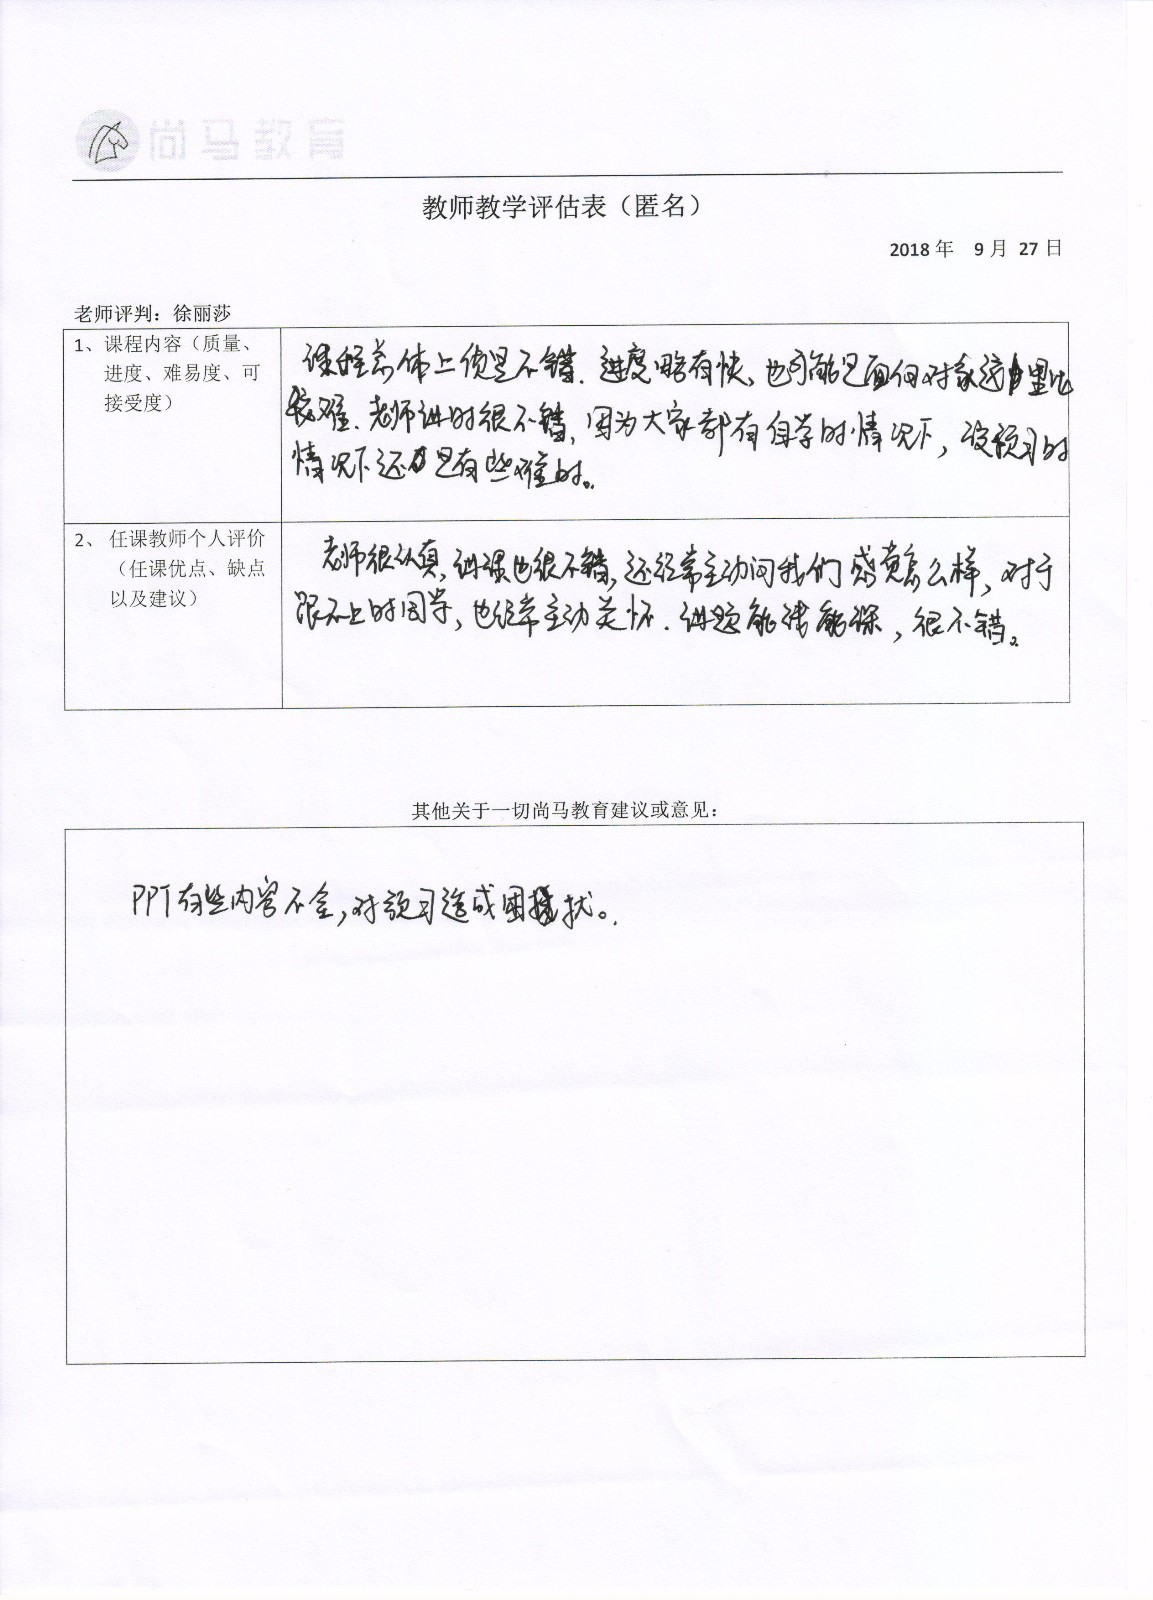 尚马教育
教师教学评估表（匿名）
2018 年 9 月 27 日
老师评判：徐丽莎
1、课程内容（质量、
进度、难易度、可
接受度）
课程总体上很是不错．进度略有快、也可能是面向对象这里比
较难．老师讲的很不错，因为大家都有自学的情况下，没预习的
情况下还是有些难的。
2、任课教师个人评价
（任课优点、缺点
以及建议）
老师很认真，讲课也很不错，还经常主动问我们感觉怎么样，对于
跟不上的同学，也经常主动关怀．讲题能浅能深，很不错。
其他关于一切尚马教育建议或意见：
PPT有些内容不全，对预习造成困扰。